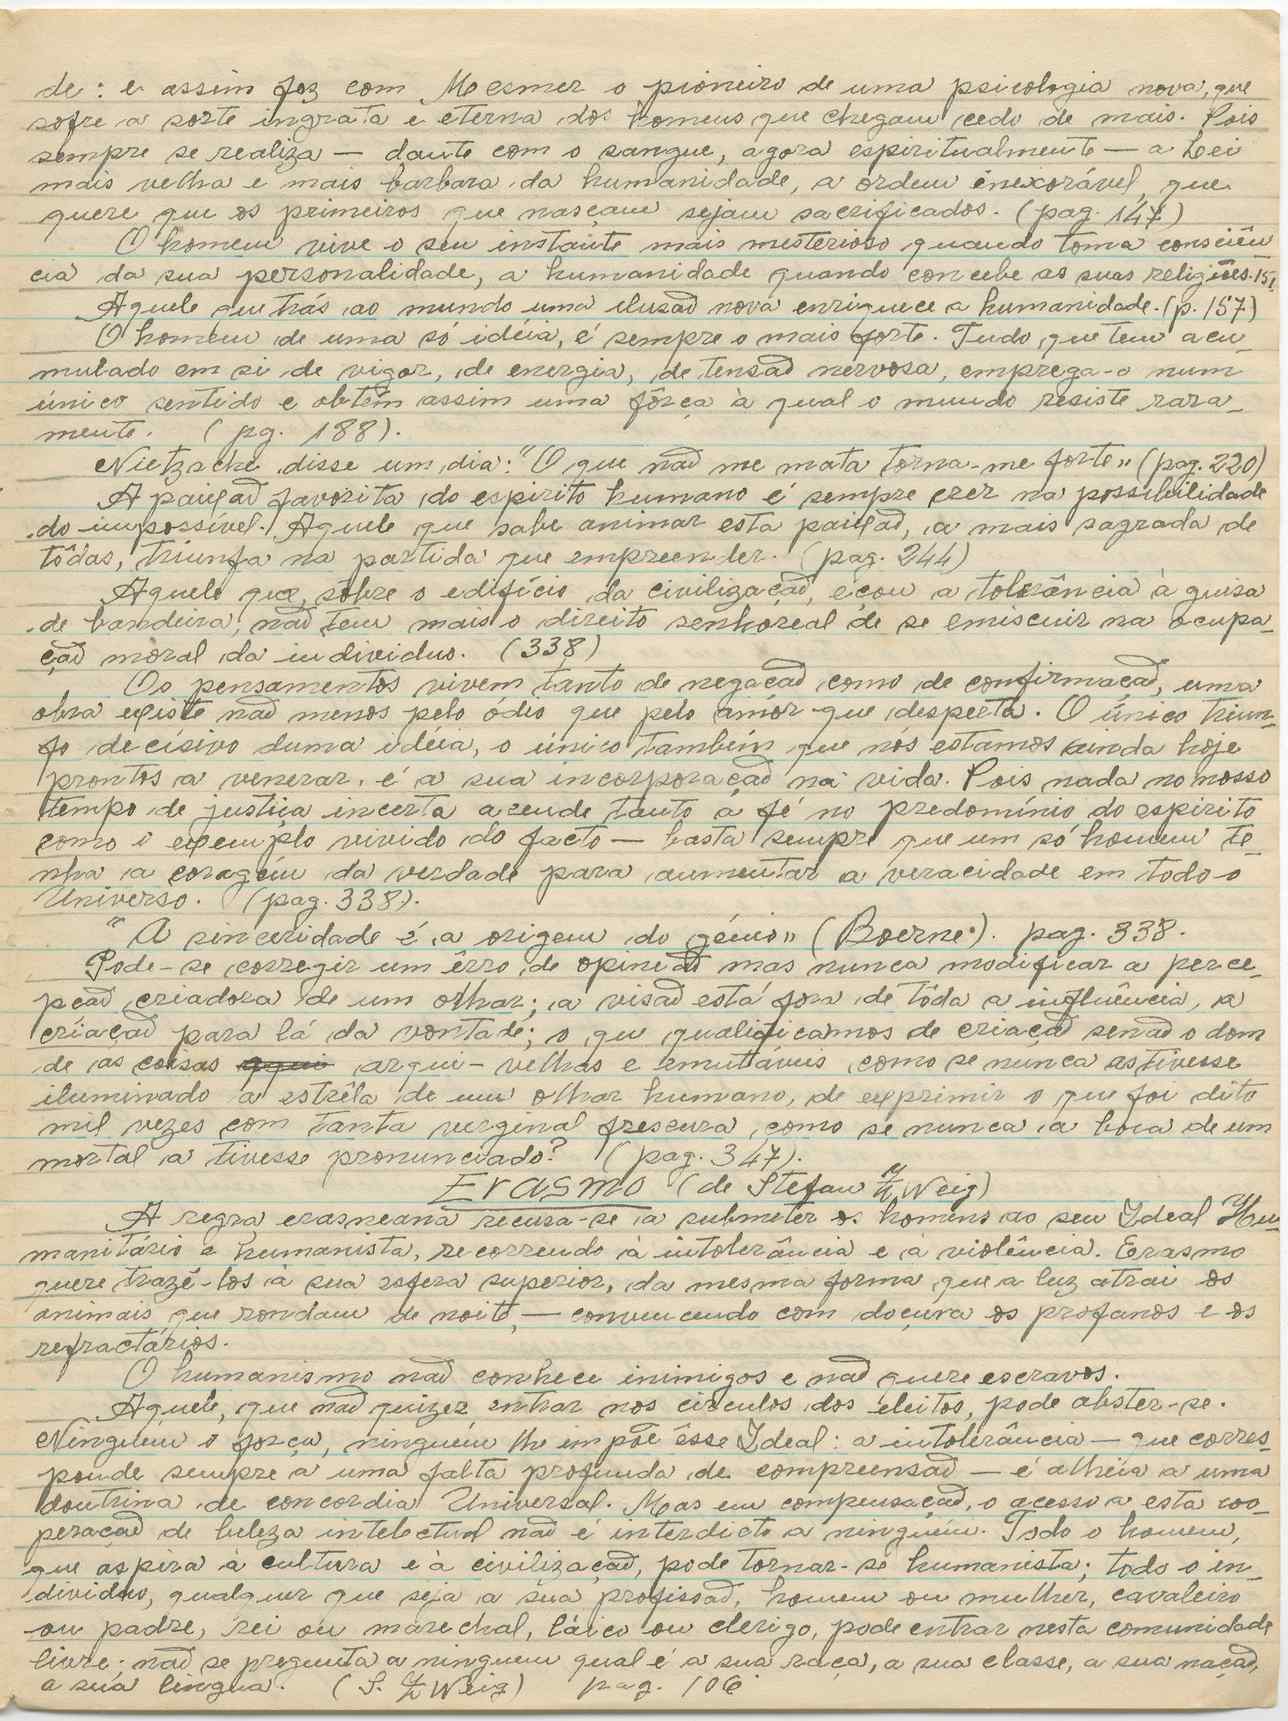 de: e assim foz com Moesmer o pioneiro de uma psicologia nova, que
sofre a sorte ingrata e eterna dos homens que chegam cedo de mais. Pois
sempre se realiza — dante com o sangue, agora espiritualmente — a Lei
mais velha e mais barbara da humanidade, a ordem inexorável, que
quere que os primeiros que nasçam sejam sacrificados. (pag. 147)
O homem vive o seu instante mais mesterioso quando toma consciên
cia da sua personalidade, a humanidade quando concebe as suas religiões. 151
Aquele que trás ao mundo uma ilusão nova enriquece a humanidade. (p. 157)
O homem de uma só idéia, é sempre o mais forte. Tudo que tem acu-
mulado em si de vigor, de energia, de tensão nervosa, emprega-o num
único sentido e obtém assim uma fôrça à qual o mundo resiste rara-
mente. (pg. 188).
Nietzsche disse um dia: "O que não me mata torna-me forte" (pag. 220)
A paixão favorita do espirito humano é sempre crer na possibilidade
do impossível. Aquele que sabe animar esta paixão, a mais sagrada de
tôdas, triunfa na partida que empreender. (pag. 244)
Aquele que, sôbre o edifício da civilização, içou a tolerância à guisa
de bandeira, não tem mais o direito senhoreal de se emiscuir na ocupa-
ção moral do individuo. (338)
Os pensamentos vivem tanto de negação como de confirmação, uma
obra existe não menos pelo ódio que pelo amôr que desperta. O único triun-
fo decisivo duma idéia, o único também que nós estamos ainda hoje
prontos a venerar, é a sua incorporação na vida. Pois nada no nosso
tempo de justiça incerta acende tanto a fé no predomínio do espirito
como o exemplo vivido do facto — basta sempre que um só homem te-
nha a coragem da verdade para aumentar a veracidade em todo o
Universo. (pag. 338).
"A sinceridade é a origem do génio" (Boerne). pag. 338.
Pode-se corregir um êrro de opinião mas nunca modificar a perce-
pção criadora de um olhar; a visão está fora de tôda a influência, a
criação para lá da vontade; o que qualificamos de criação senão o dom
de as coisas aqui arqui-velhas e emutáveis como se nunca as tivesse
iluminado a estrêla de um olhar humano, de exprimir o que foi dito
mil vezes com tanta verginal frescura como se nunca a boca de um
mortal a tivesse pronunciado? (pag. 347).
Erasmo (de Stefan Zweig)
A regra erasmeana recusa-se a submeter os homens ao seu Ideal Hu-
manitário e humanista, recorrendo à intolerância e à violência. Erasmo
quere trazê-los à sua esfera superior, da mesma forma que a luz atrai os
animais que rondam de noite, — convencendo com doçura os profanos e os
refractários.
O humanismo não conhece inimigos e não quere escravos.
Aquele, que não quizer entrar nos circulos dos eleitos, pode abster-se.
Ninguém o força, ninguém lhe impõe êsse Ideal: a intolerância — que corres-
ponde sempre a uma falta profunda de compreensão — é alheia a uma
doutrina de concordia Universal. Mas em compensação, o acesso a esta coo-
peração de beleza intelectual não é interdicto a ninguém. Todo o homem,
que aspira à cultura e à civilização, pode tornar-se humanista; todo o in-
dividuo, qualquer que seja a sua profissão, homem ou mulher, cavaleiro
ou padre, rei ou marechal, láico ou clerigo, pode entrar nesta comunidade
livre; não se pregunta a ninguem qual é a sua raça, a sua classe, a sua nação,
a sua lingua. (S. Zweig) pag. 106